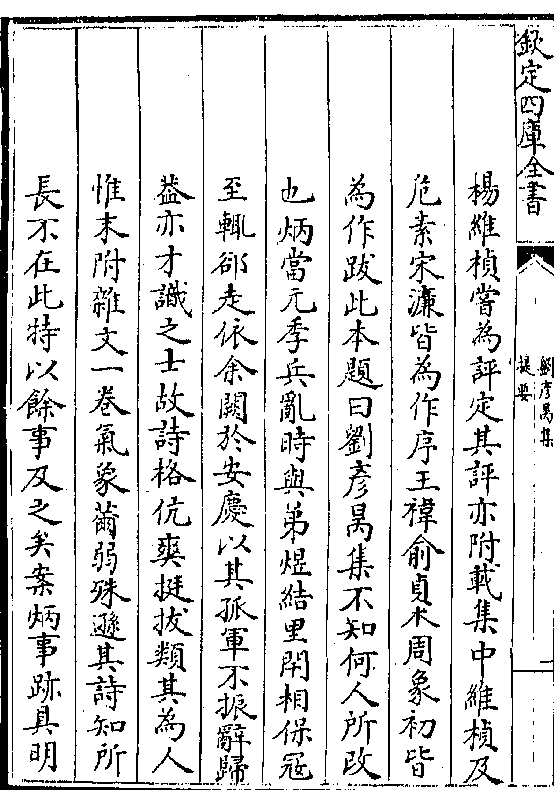 欽定四庫全書
劉彥昺集
提要
楊維楨嘗為評定其評亦附載集中維楨及
危素宋濂皆為作序王禕俞貞木周象初皆
為作跋此本題曰劉彥昺集不知何人所改
也炳當元季兵亂時與弟煜結里閈相保冦
至輒郤走依余闕於安慶以其孤軍不振辭歸
葢亦才識之士故詩格伉爽挺拔類其為人
惟末附雜文一卷氣象薾弱殊遜其詩知所
長不在此特以餘事及之矣案炳事跡具明